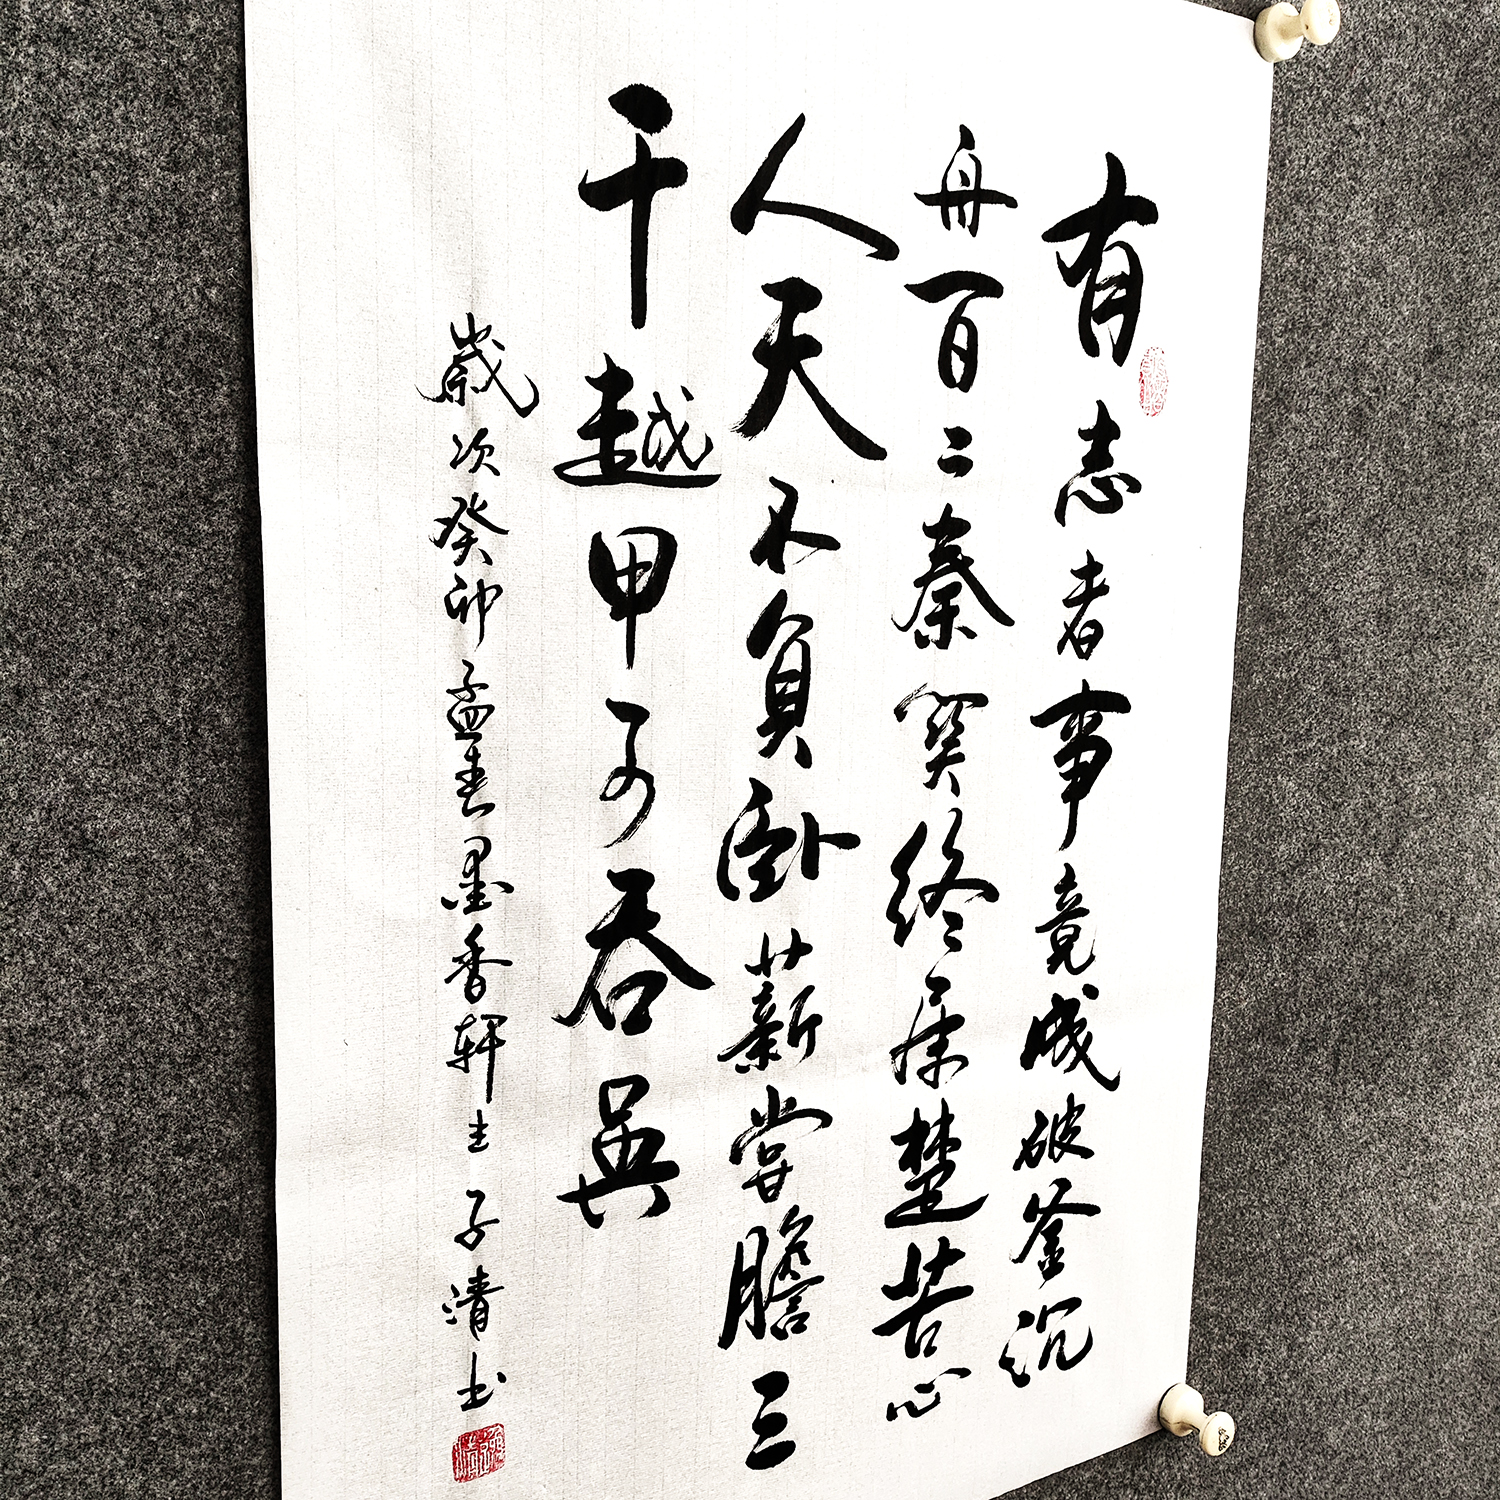 有志者事竟成破釜沉
舟百二秦關終属楚苦心
人天不負卧薪嘗膽三
千越甲可吞吳
歲次癸卯孟春墨香軒主子清书